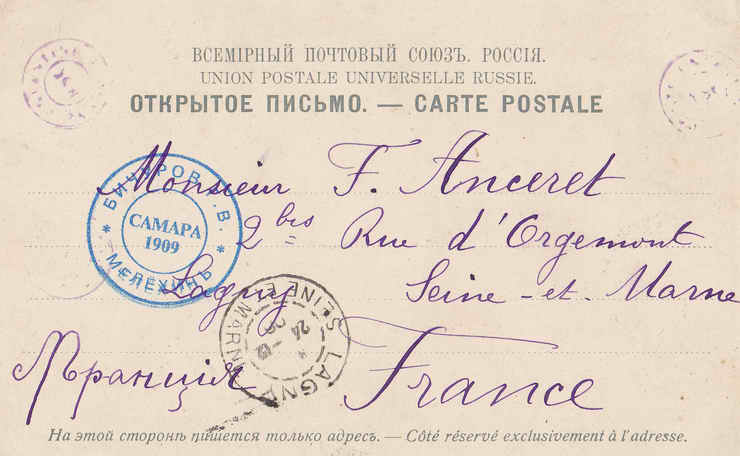 ВСЕМІРНЫЙ ПОЧТОВЫЙ СОЮЗЪ. РОССІЯ.
UNION POSTALE UNIVERSELLE RUSSIE.
ОТКРЫТОЕ ПИСЬМО. — CARTE POSTALE
Monsieur F. Anceret
2 bis Rue d'Orgemont
Lagny Seine-et-Marne
Франція France
САМАРА
1909
МЕЛЕХИНЪ
LAGNY
SEINE ET MARNE
24
На этой сторонѣ пишется только адресъ. — Côté réservé exclusivement à l'adresse.